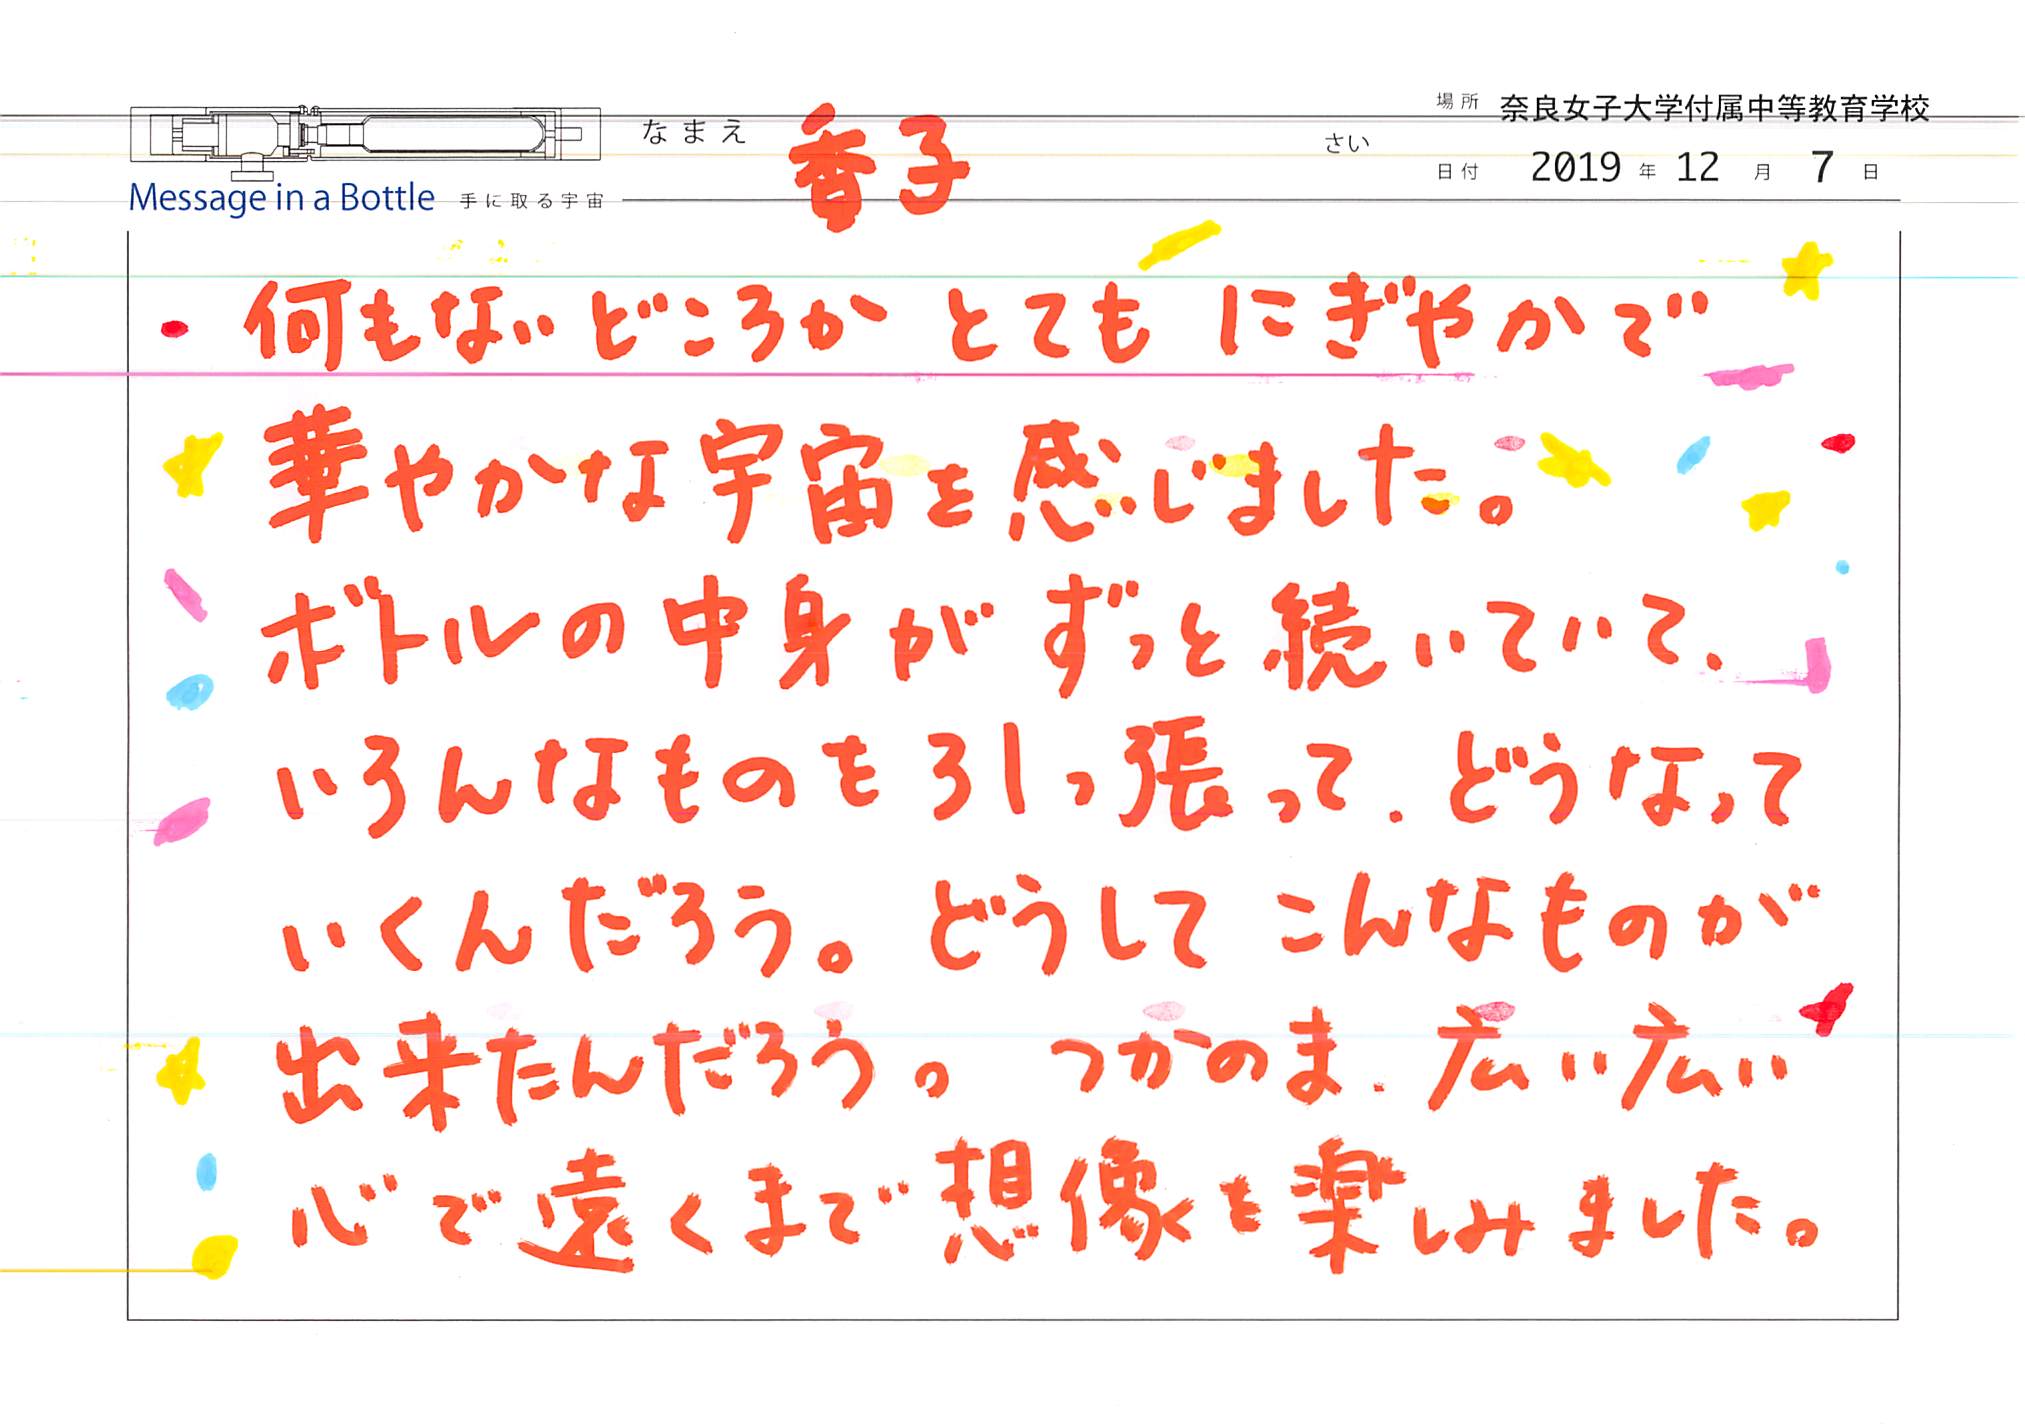 場所 奈良女子大学付属中等教育学校
なまえ 香子 さい
日付 2019 年 12 月 7 日
Message in a Bottle 手に取る宇宙
何もないどころか とても にぎやかで
華やかな宇宙を感じました。
ボトルの中身が ずっと続いていて、
いろんなものを引っ張って、どうなって
いくんだろう。どうして こんなものが
出来たんだろう。つかのま、広い広い
心で遠くまで想像を楽しみました。